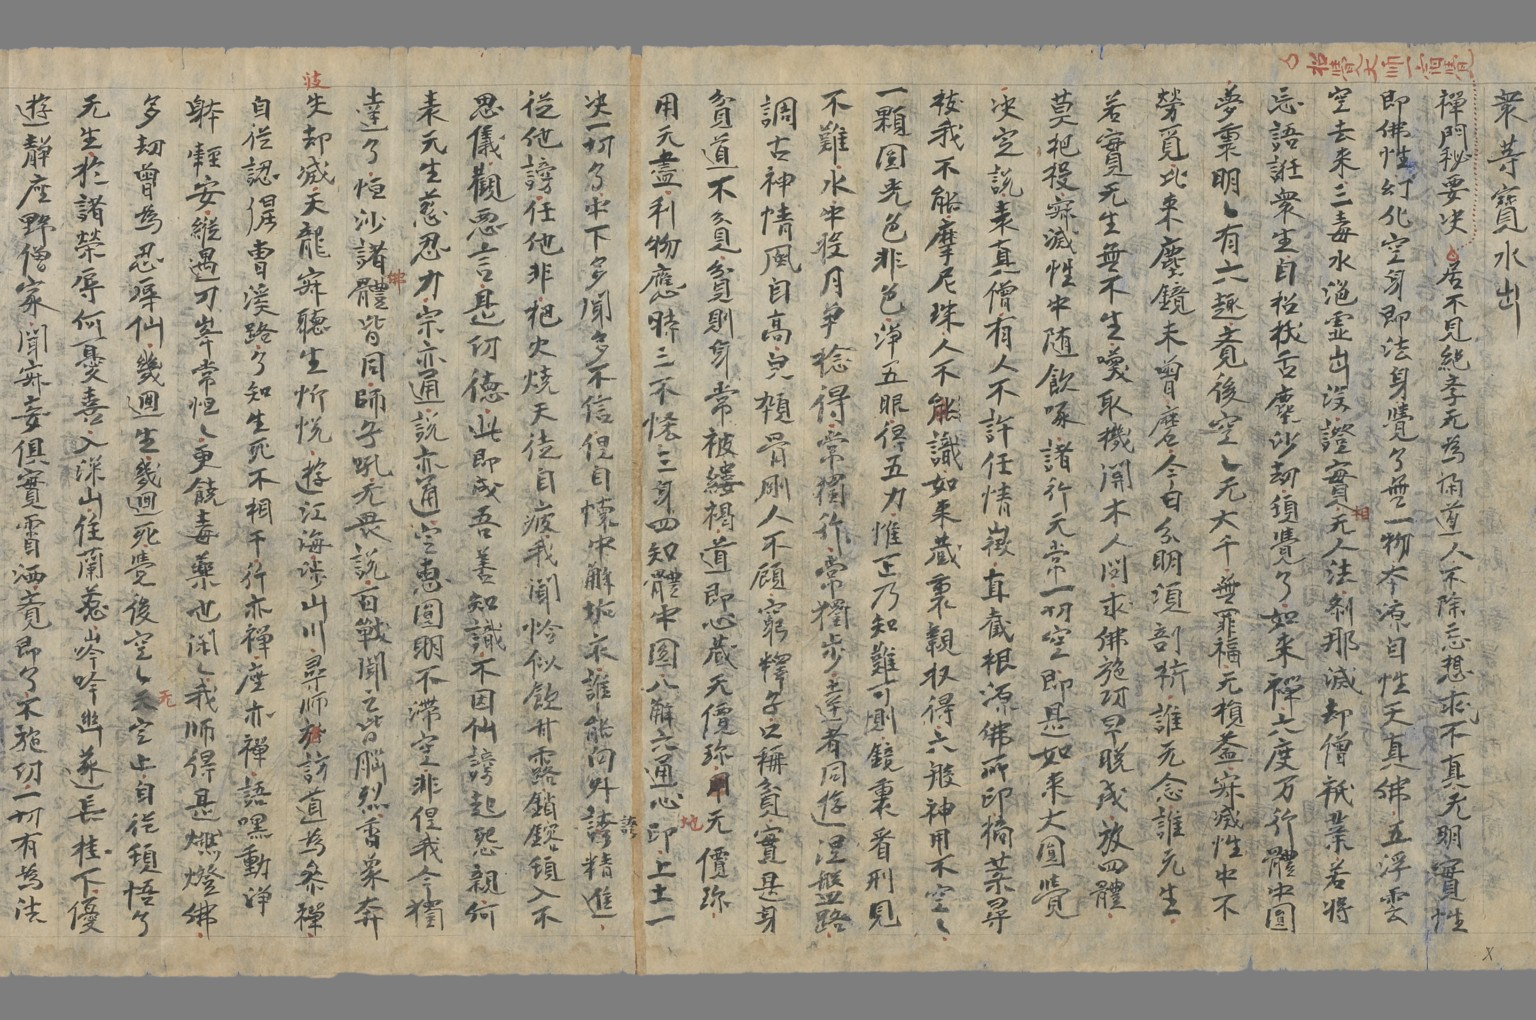 衆等寶水出
禪門秘要决 君不見絶孝无爲閑道人不除忘想求不真无明實性
即佛性幻化空身即法身覺了無一物本源自性天真佛五浮雲
空去来三毒水泡虛出没證實相无人法刹那滅却僧祇業若將
忘語誑衆生自招拔舌塵沙劫頓覺了如来禪六度万行體中圓
夢裏明明有六趣覺後空空无大千無罪福无損益寂滅性中不
勞覓比来塵鏡未曽磨今日分明須剖析誰无念誰无生
若實无生無不生喚取機關木人問求佛施功早晚成放四體
莫把投寂滅性中随飲啄諸行无常一切空即是如来大圓覺
决定說表真僧有人不許任情徵直截根源佛所印摘葉尋
枝我不能摩尼珠人不識如来蔵裏親収得六般神用不空空
一顆圓光色非色淨五眼得五力惟正乃知難可惻鏡裏看刑見
不難水中投月争捻得常獨行常獨步達者同遊涅盤路
調古神情風自高皃頳骨剛人不顧窮釋子口稱貧實是身
貧道不貧貧則身常被縷褐道即心蔵无價珎无價珎
用无盡利物應時三不恡三身四知體中圓八解六通心地印上士一
决一切了中下多聞多不信但自懷中解垢衣誰能向外誇精進
従他謗任他非把火燒天徒自疲我聞恰似飲甘露銷鎔頓入不
思儀觀惡言是功德此即成吾善知識不因仙謗起怨親何
表无生慈忍力宗亦通說亦通定惠圓明不滯空非但我今獨
達了恒沙諸佛體皆同師子吼无畏說百戰聞之皆腦烈香象奔
失却威天龍寂聽生忻悅遊江海涉山川尋師訪道爲参禪
自従認得曺溪路了知生死不相干行亦禪座亦禪語嘿動淨
躰輕安縱遇刀峯常恒恒更饒毒藥也閑閑我師得是燃燈佛
多劫曽爲忍辱仙幾迴生幾迴死覺後空空无定止自従頓悟了
无生於諸榮辱何憂喜入深山住蘭惹岑吟幽邃長桂下優
遊静座野僧家閴寂安俱實霄洒覺即了不施功一切有爲法